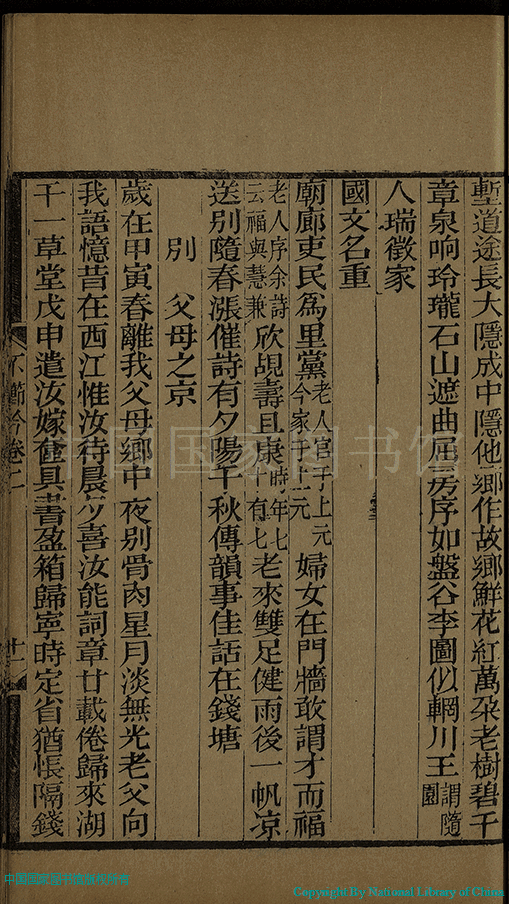 塹道途長大隱成中隱他鄉作故鄉鮮花紅萬朶老樹碧千
章泉响玲瓏石山遮曲屈房序如盤谷李圖似輞川王謂隨園
人瑞徵家
國文名重
廟廊吏民爲里黨老人官于上元今家于上元婦女在門牆敢謂才而福
老人序余詩云福與慧兼欣覘壽且康時年七十有七老來雙足健雨後一帆凉
送別隨春漲催詩有夕陽千秋傳韻事佳話在錢塘
別 父母之京
歲在甲寅春離我父母鄉中夜別骨肉星月淡無光老父向
我語憶昔在西江惟汝待晨夕喜汝能詞章廿載倦歸來湖
干一草堂戊申遣汝嫁舊具書盈箱歸寧時定省猶悵隔錢
卷二
中国国家图书馆
Copyright By National Library of China